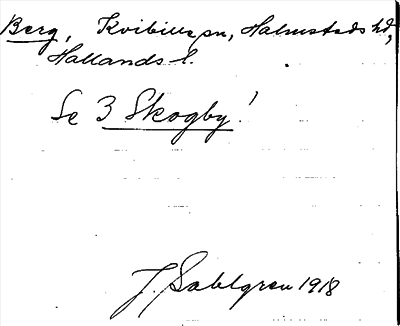 Berg, Kvibille sn, Halmstads hd,
Hallands l.
Se 3 Skogby!
J. Sahlgren 1918